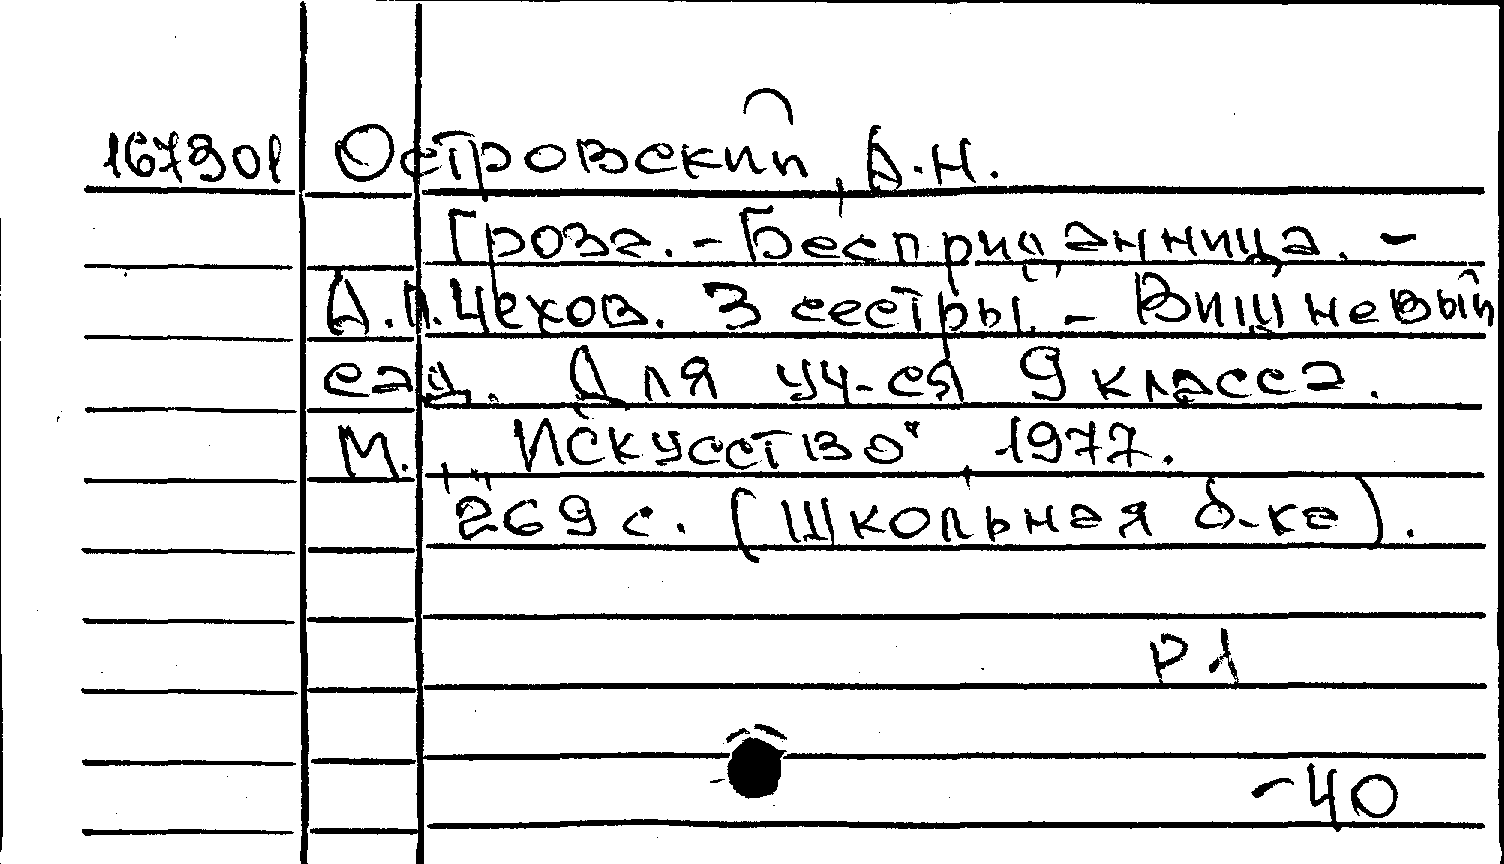 167301 Островский, А.Н.
Гроза. - Бесприданница. -
А.П.Чехов. 3 сестры. - Вишневый
сад. Для уч-ся 9 класса.
М., "Искусство", 1977.
269 с. (Школьная б-ка).
Р1
-40